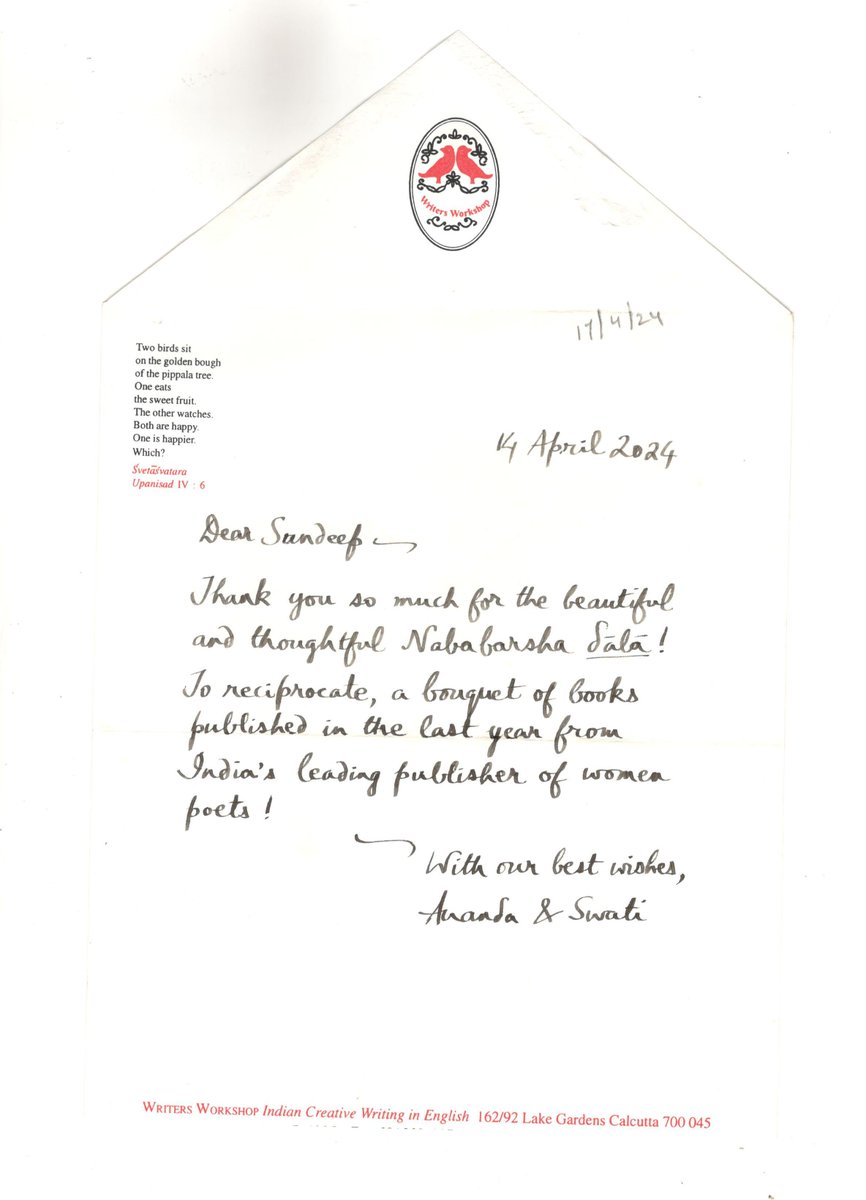 Writers Workshop
17/4/24
Two birds sit
on the golden bough
of the pippala tree.
One eats
the sweet fruit.
The other watches.
Both are happy.
One is happier.
Which?
Śvetāśvatara
Upaniṣad IV : 6
14 April 2024
Dear Sundeep
Thank you so much for the beautiful
and thoughtful Nababarsha ḍālā!
To reciprocate, a bouquet of books
published in the last year from
India's leading publisher of women
poets!
With our best wishes,
Ananda & Swati
WRITERS WORKSHOP Indian Creative Writing in English 162/92 Lake Gardens Calcutta 700 045